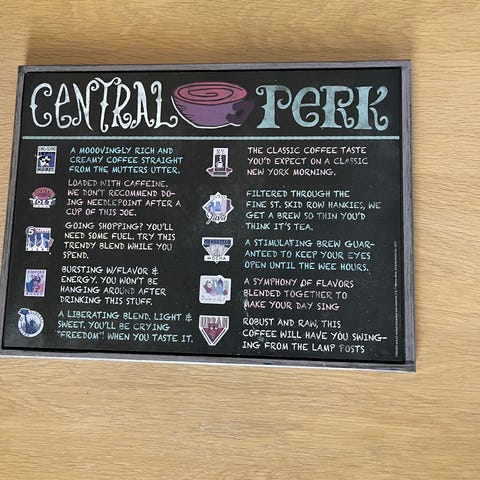 CENTRAL PERK
A MOOOVINGLY RICH AND
CREAMY COFFEE STRAIGHT
FROM THE MUTTERS UTTER.
LOADED WITH CAFFEINE.
WE DON'T RECOMMEND DO-
ING NEEDLEPOINT AFTER A
CUP OF THIS JOE.
GOING SHOPPING? YOU'LL
NEED SOME FUEL. TRY THIS
TRENDY BLEND WHILE YOU
SPEND.
EMPIRE
BURSTING W/FLAVOR &
ENERGY. YOU WON'T BE
HANGING AROUND AFTER
DRINKING THIS STUFF.
A LIBERATING BLEND. LIGHT &
SWEET. YOU'LL BE CRYING
"FREEDOM"! WHEN YOU TASTE IT.
N.Y.
THE CLASSIC COFFEE TASTE
YOU'D EXPECT ON A CLASSIC
NEW YORK MORNING.
Java
FILTERED THROUGH THE
FINE ST. SKID ROW HANKIES, WE
GET A BREW SO THIN YOU'D
THINK IT'S TEA.
MANHATTAN
MOCHA
A STIMULATING BREW GUAR-
ANTEED TO KEEP YOUR EYES
OPEN UNTIL THE WEE HOURS.
A SYMPHONY OF FLAVORS
BLENDED TOGETHER TO
MAKE YOUR DAY SING
URBAN
ROBUST AND RAW, THIS
COFFEE WILL HAVE YOU SWING-
ING FROM THE LAMP POSTS